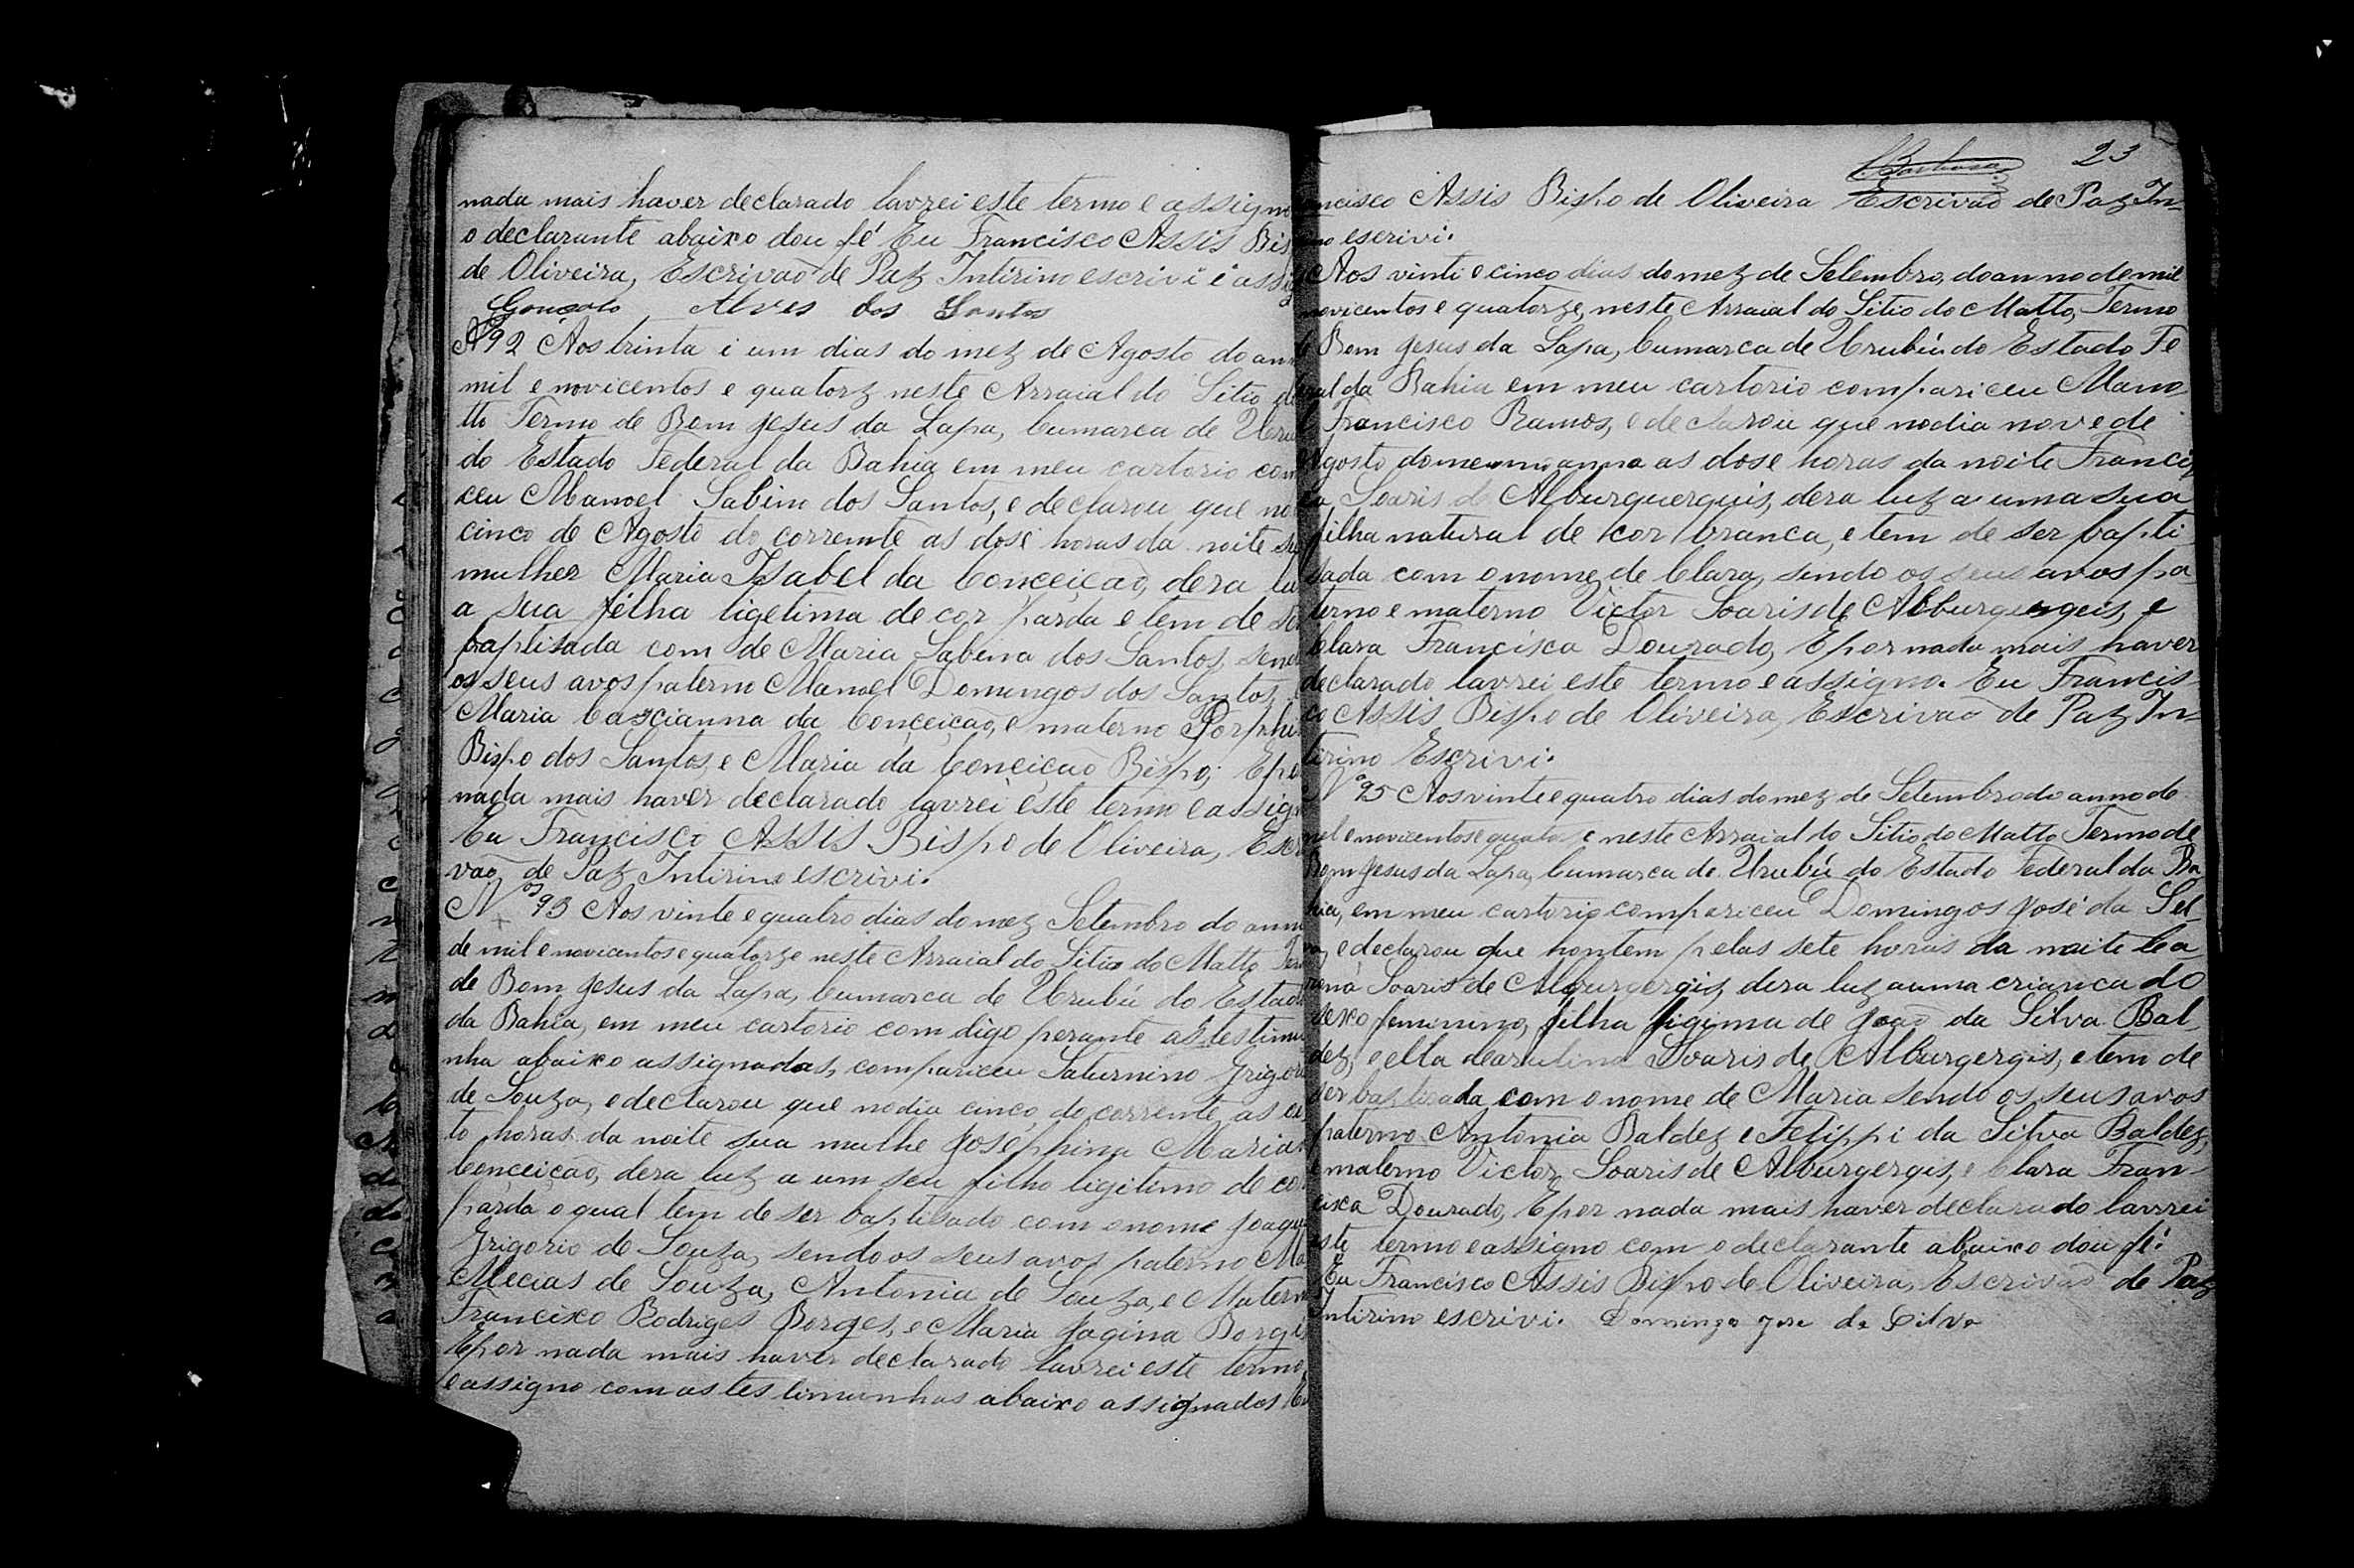 nada mais haver declarado lavrei este termo e assigno
o declarante abaixo dou fé Eu Francisco Assis Bis
de Oliveira, Escrivaõ de Paz Intirino escrivi e assig
Gonsolo Alves dos Santos
Nº 92 Aos trinta i um dias do mez de Agosto do ann
mil e novicentos e quatorz neste Arraial do Sitio do
tto Termo de Bom Jesus da Lapa, Cumarca de Uru
do Estado Federal da Bahia em meu cartorio com
ceu Manoel Sabino dos Santos, e declarou que no
cinco de Agosto do corremte as dose horas da noite su
mulher Maria Isabel da Conceiçaõ, dera lu
a sua félha ligetima de cor parda e tem de se
baptisada com de Maria Sabina dos Santos, send
os seus avos paterno Manoel Domingos dos Santos,
Maria Cascianna da Conçeiçaõ, e materno Porphi
Bispo dos Santos, e Maria da Conciçaõ Bispo; E po
nada mais haver declarado lavrei este termo e assign
Eu Francisco Assis Bispo de Oliveira, Escr
vaõ de Paz Intirino escrivi.
Nº 93 Aos vinte e quatro dias do mez Setembro do ann
de mil e novicentos e quatorze neste Arraial do Sitio do Matto, Ter
de Bom Jesus da Lapa, Cumarca de Urubú do Estad
da Bahia, em meu cartorio com digo perante as testimu
nha abaixo assignadas, compariceu Saturnino Grigori
de Souza, e declarou que no dia cinco do corrente, as oi
to horas da noite sua mulhe Josephina Maria
Conceição, dera luz a um seu filho ligitimo de co
parda o qual tem de ser baptisado com o nome Joaqu
Grigorio de Souza, sendo os seus avos paterno Ma
Mecias de Souza, Antonia de Souza, e Matern
Francixo Rodriges Borges, e Maria Jagina Borges
E por nada mais haver declarado lavrei este termo,
e assigno com as testimunhas abaixo assignados Eu
23
ncisco Assis Bispo de Oliveira Escrivaõ de Paz In-
no escrivi.
Aos vinti e cinco dias do mez de Setembro, do anno de mil
novicentos e quatorze, neste Arraial do Sitio do Matto, Termo
Bom Jesus da Lapa, Cumarca de Urubú do Estado Fe
ral da Bahia em meu cartorio compariceu Mano
Francisco Ramos, e declarou que no dia nove de
Agosto do mesmo anno as dose horas da noite Francis
ca Soaris de Alburquerquis, dera luz a uma sua
filha natural de cor branca, e tem de ser bapti
sada com o nome de Clara, sendo os seus avos pa
terno e materno Victor Soaris de Alburquergeis, e
Clara Francisca Dourado, E por nada mais haver
declarado lavrei este termo e assigno. Eu Francis-
co Assis Bispo de Oliveira, Escrivaõ de Paz In-
tirino Escrivi.
Nº 95 Aos vinte e quatro dias do mez de Setembro do anno de
mil e novicentos e quatorze neste Arraial do Sitio do Matto Termo de
Bom Jesus da Lapa, Cumarca de Urubú do Estado Federal da Ba
hia, em meu cartorio compariceu Domingos José da Sil-
va, e declarou que hontem pelas sete horas da noite
Soaris de Alburgergis, dera luz a uma crianca do
sexo feminino, filha de Joaõ da Silva Bal-
dez, e ella Soaris de Alburgergis, e tem de
ser baptisada com o nome de Maria sendo os seus avos
paterno Antonia Baldez e Felippi da Silva Baldez,
e materno Victor Soaris de Alburgergis, e Clara Fran-
cisca Dourado, E por nada mais haver declarado lavrei
este termo e assigno com o declarante abaixo dou fé.
Eu Francisco Assis Bispo de Oliveira, Escrivaõ de Paz
Intirino escrivi. Domingo Jose da Silva